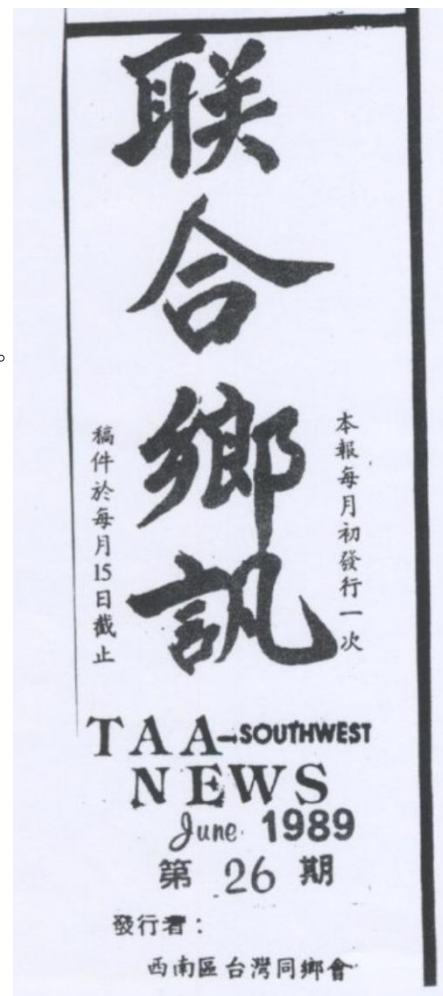 联合鄉訊
本報每月初發行一次
稿件於每月15日截止
TAA-SOUTHWEST
NEWS
June 1989
第 26 期
發行者：
西南區台灣同鄉會